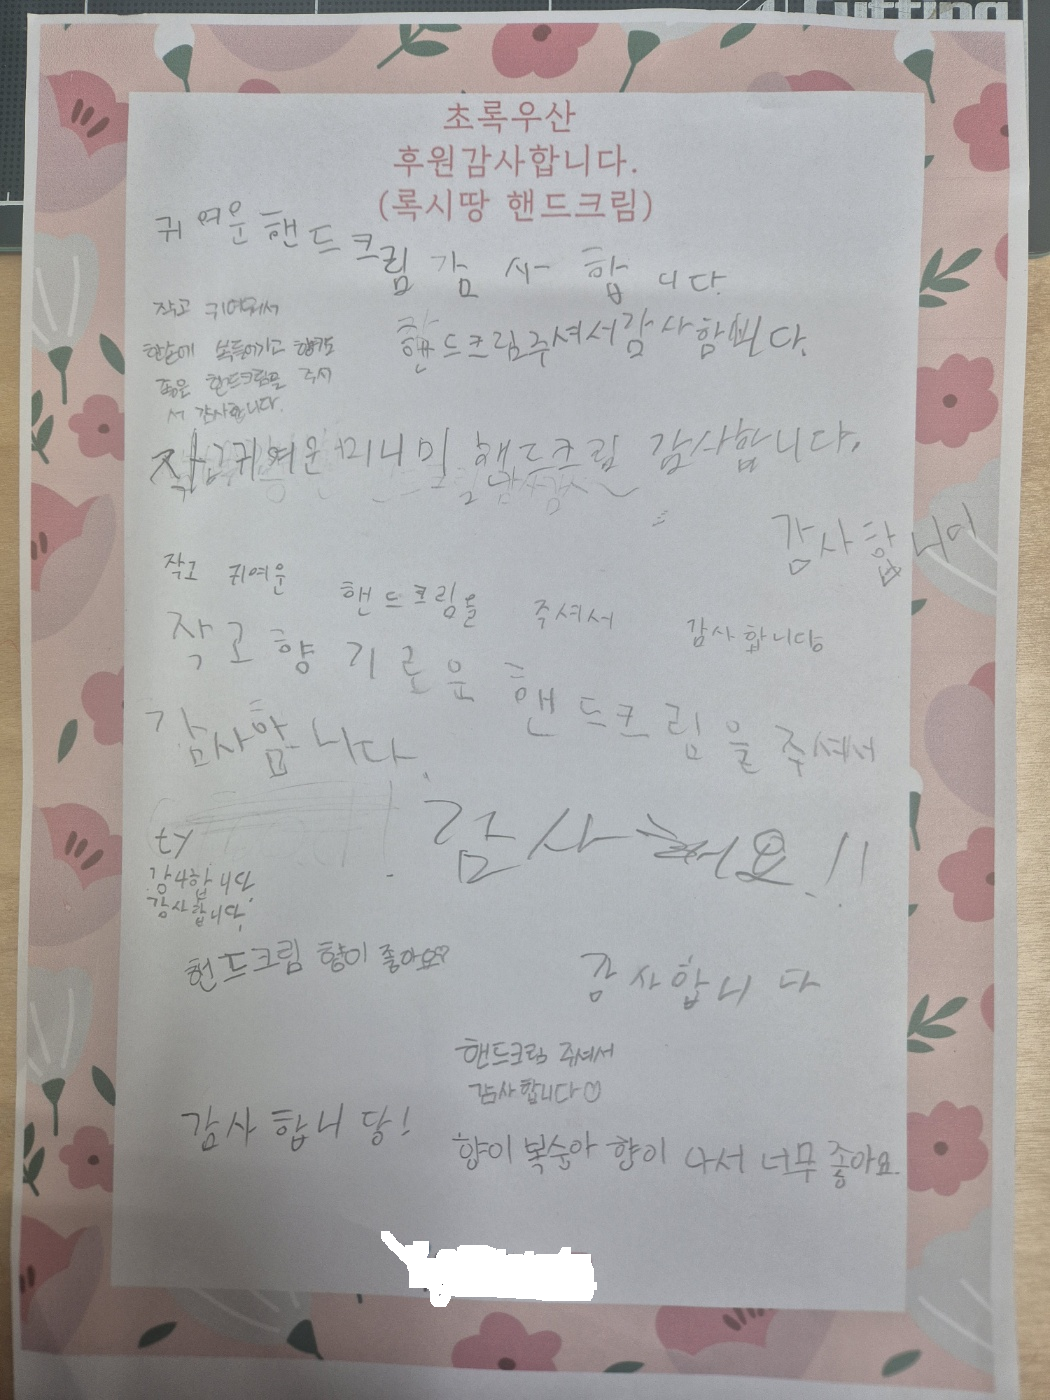 Cutting
초록우산
후원감사합니다.
(록시땅 핸드크림)
귀여운핸드크림 감사합니다.
작고 귀여워서
한손에 쏙들어가고 향기도
좋은 핸드크림을 주셔
서 감사합니다.
핸드크림주셔서감사합니다.
작고귀여운미니미 핸드크림 감사합니다.
감사합니다
작고 귀여운 핸드크림을 주셔서 감사합니당
작고 향기로운 핸드크림을 주셔서
감사합니다.
감사해요!!
ty
감사합니다.
감사합니다.
핸드크림 향이 좋아요?
감사합니다
핸드크림 주셔서
감사합니다♡
감사합니당!
향이 복숭아 향이 나서 너무 좋아요